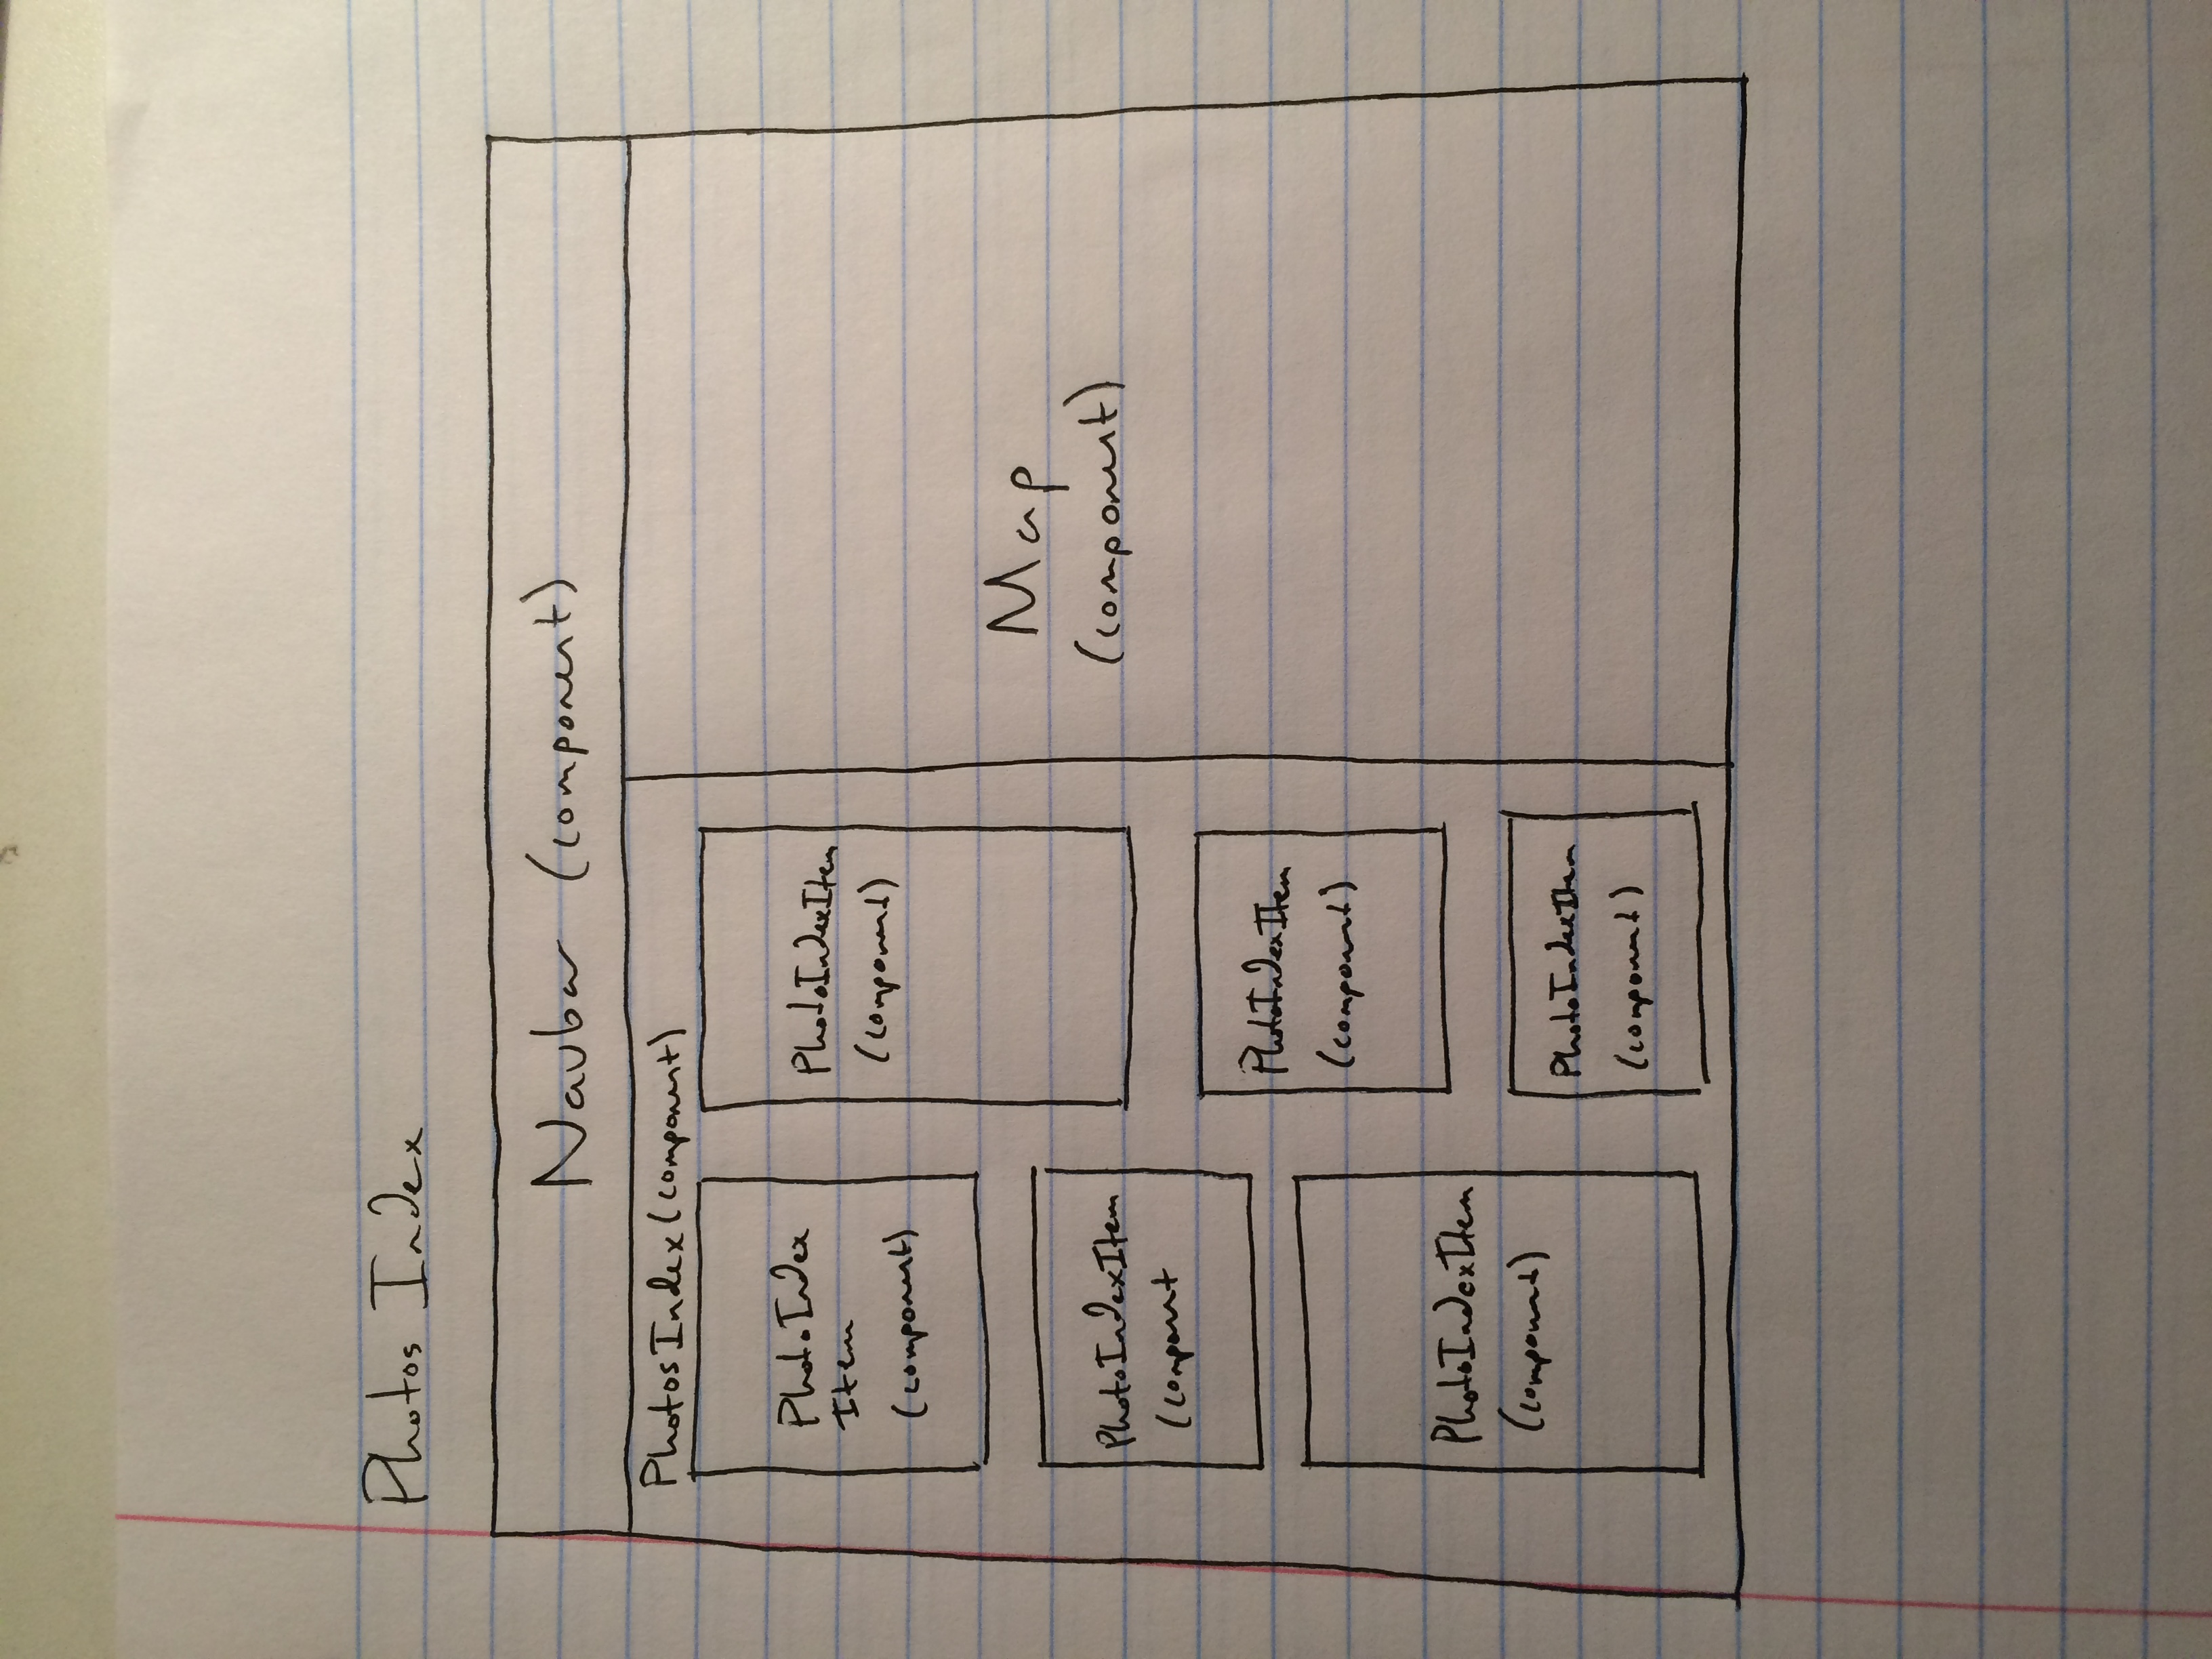 Photos Index
Navbar (component)
PhotosIndex (component)
PhotoIndex
Item
(component)
PhotoIndexItem
(component)
PhotoIndexItem
(component
PhotoIndexItem
(component)
PhotoIndexItem
(component)
PhotoIndexItem
(component)
Map
(component)